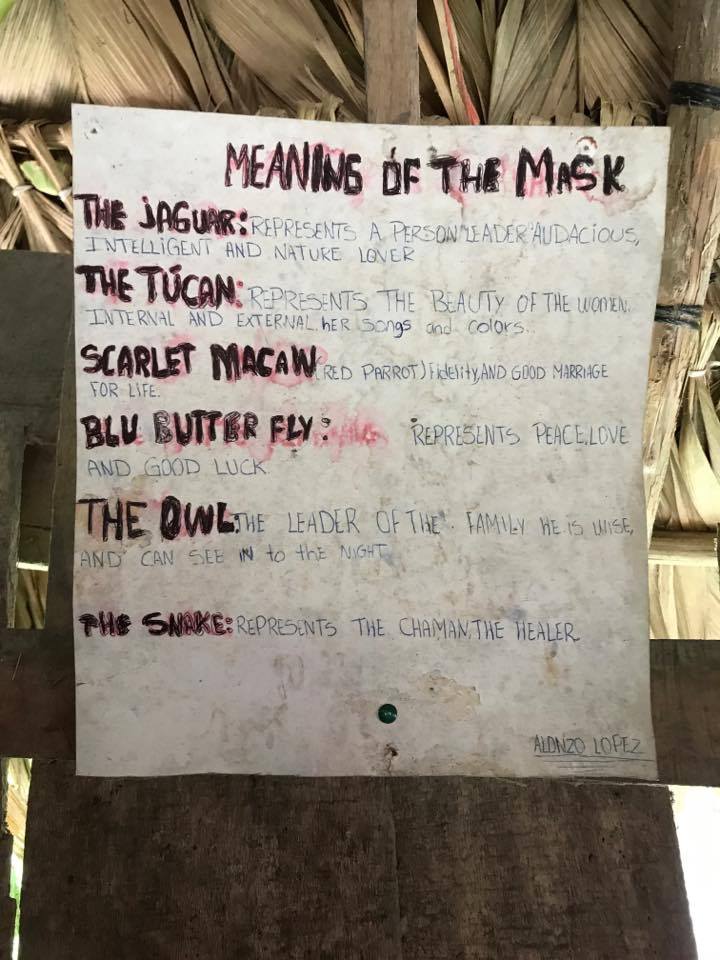 MEANING OF THE MASK
THE JAGUAR: REPRESENTS A PERSON "LEADER" AUDACIOUS,
INTELLIGENT AND NATURE LOVER
THE TÚCAN: REPRESENTS THE BEAUTY OF THE WOMEN.
INTERNAL AND EXTERNAL. her songs and colors..
SCARLET MACAW (RED PARROT) Fidelity, AND GOOD MARRIAGE
FOR LIFE.
BLU BUTTER FLY: REPRESENTS PEACE, LOVE
AND GOOD LUCK
THE OWL: THE LEADER OF THE FAMILY HE IS WISE,
AND CAN SEE IN to the NIGHT
THE SNAKE: REPRESENTS THE CHAMAN, THE HEALER
ALONZO LOPEZ